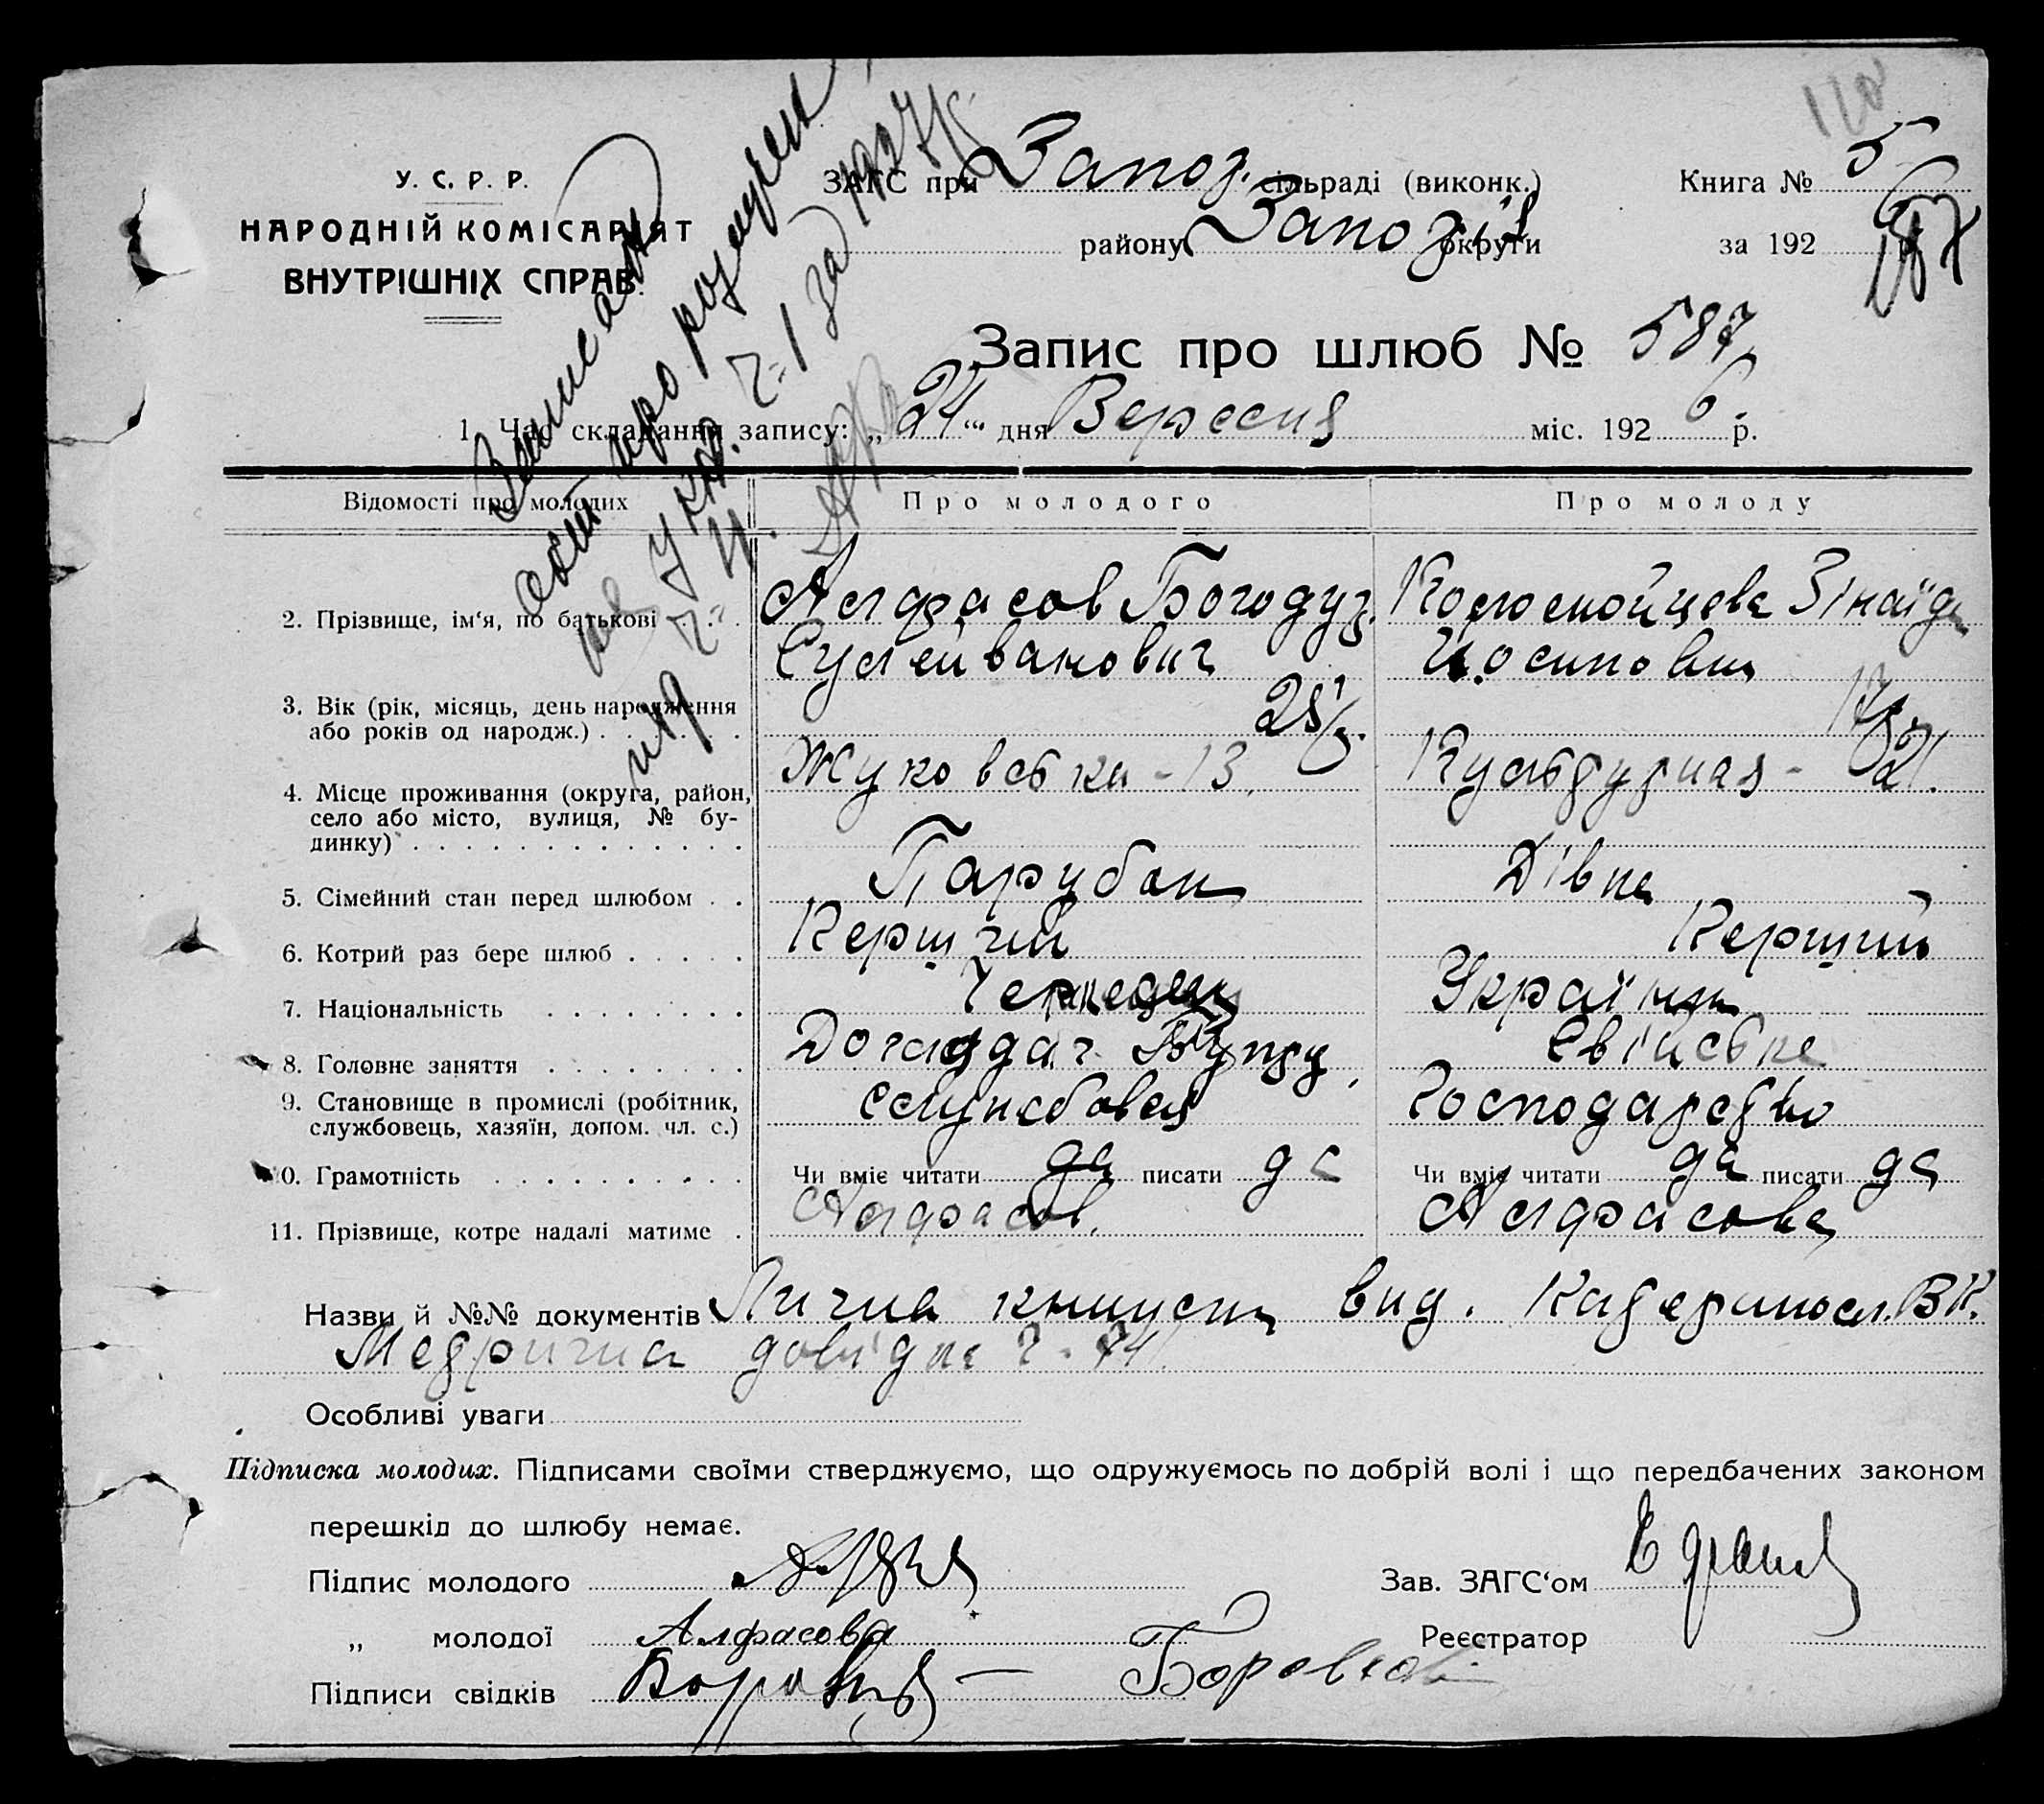 У. С. Р. Р.
НАРОДНІЙ КОМІСАРІЯТ
ВНУТРІШНІХ СПРАВ.
ЗАГС при Запоз. сільраді (виконк.)
району Запоз. округи
Книга № 5
за 192 6
187
Запис про шлюб № 587
1. Час складання запису: „24“ дня Вересня міс. 1926 р.
Записано
акт про розлучен
1927 р.
Відомості про молодих Про молодого Про молоду
2. Прізвище, ім‘я, по батькові . . Алфасов Богодур. Зінаїда
Сулейванович Йосиповна
3. Вік (рік, місяць, день народження
або років од народж.) . . . . . .
Жуковська - 13. Культурная - 21.
4. Місце проживання (округа, район,
село або місто, вулиця, № бу-
динку) . . . . . . . . . . . . .
5. Сімейний стан перед шлюбом . . Парубок Дівка
6. Котрий раз бере шлюб . . . . . Перший Перший
7. Національність . . . . . . . . Українка
8. Головне заняття . . . . . . . Доглядач Свійське
9. Становище в промислі (робітник,
службовець, хазяїн, допом. чл. с.) Службовец Господарство
10. Грамотність . . . . . . . . . . Чи вміє читати да писати да Чи вміє читати да писати да
11. Прізвище, котре надалі матиме . Алфасов. Алфасова
Назви й №№ документів Лична книжка вид. Катериносл. ВК.
Метрична довідка ч. 74
Особливі уваги
Підписка молодих. Підписами своїми стверджуємо, що одружуємось по добрій волі і що передбачених законом
перешкід до шлюбу немає.
Підпис молодого Зав. ЗАГС‘ом
„ молодої Алфасова Реєстратор
Підписи свідків